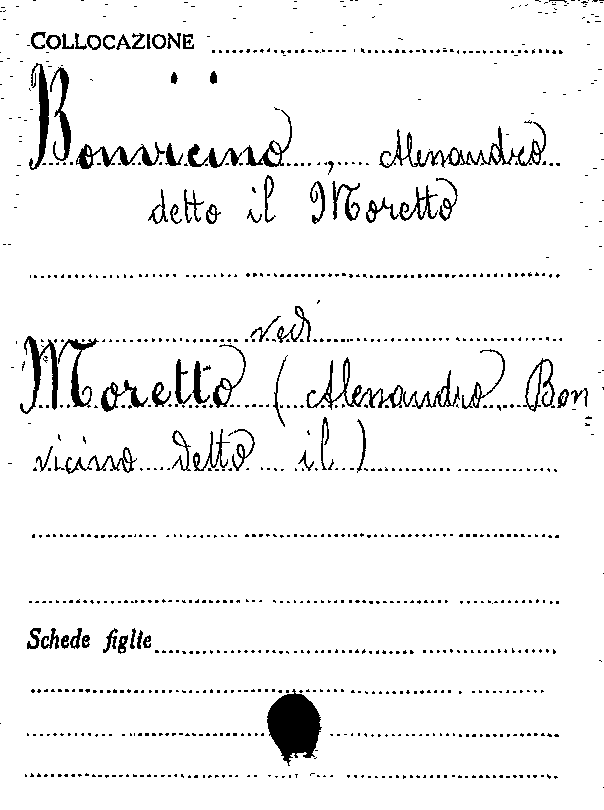 COLLOCAZIONE
Bonvicino, Alessandro
detto il Moretto
vedi
Moretto (Alessandro Bon=
vicino detto il)
Schede figlie